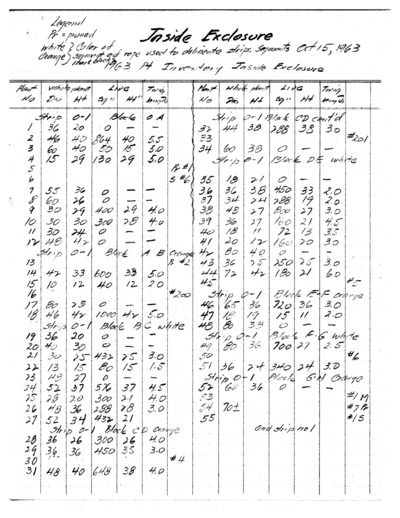 Legend
Pr = pruned
Inside Exclosure
white } Color of
orange } segmented rope used to delineate strip segments Oct 15, 1963
1963 Pt Inventory Inside Exclosure
Plant whole plant Live Twig Plant Whole plant Live Twig
No Dia Ht Sq " Ht Length No Dia Ht Sq " Ht Length
Strip 0-1 Block O A Strip 0-1 Block CD cont'd
1 36 20 0 — — 32 44 38 288 33 3.0
2 46 40 864 40 5.5 33 #201
3 60 40 50 15 5.0 34 60 33 0 — —
4 15 29 130 29 5.0 Strip 0-1 Block DE white
5 Pr #1
6 S #6 35 18 21 0 — —
7 55 36 0 — — 36 36 38 450 33 2.0
8 60 26 0 — — 37 34 24 288 19 2.0
9 30 29 400 29 4.0 38 48 27 800 27 3.0
10 30 30 300 28 4.0 39 36 27 160 21 4.5
11 30 24 0 — — 40 18 11 72 13 3.5
12 48 42 0 — — 41 20 12 160 20 3.0
Strip 0-1 Block A B orange 42 80 40 0 — —
13 Pr #2 43 36 25 250 25 3.0
14 42 33 600 33 5.0 44 72 42 180 21 6.0
15 10 12 40 12 2.0 45 #5
16 #200 Strip 0-1 Block E-F orange
17 80 28 0 — — 46 65 36 720 36 3.0
18 46 42 1000 42 5.0 47 18 19 15 11 2.0
Strip 0-1 Block BC white 48 80 33 0 — —
19 36 20 0 — — Strip 0-1 Block F-G white
20 40 30 0 — — 49 80 36 700 27 2.5
21 30 25 432 25 3.0 50 #6
22 13 15 80 15 1.5 51 36 24 340 24 3.0
23 48 27 0 — — Strip 0-1 Block G-H orange
24 52 37 576 37 4.5 52 65 36 0 — —
25 28 20 300 21 4.0 53 #1 M
26 48 36 288 28 3.0 54 70± #7 Pr
27 52 34 432 21 55 #1 S
Strip 0-1 Block CD orange end strip no 1
28 36 26 300 26 4.0
29 36 36 450 35 3.0
30 #4
31 48 40 648 38 4.0